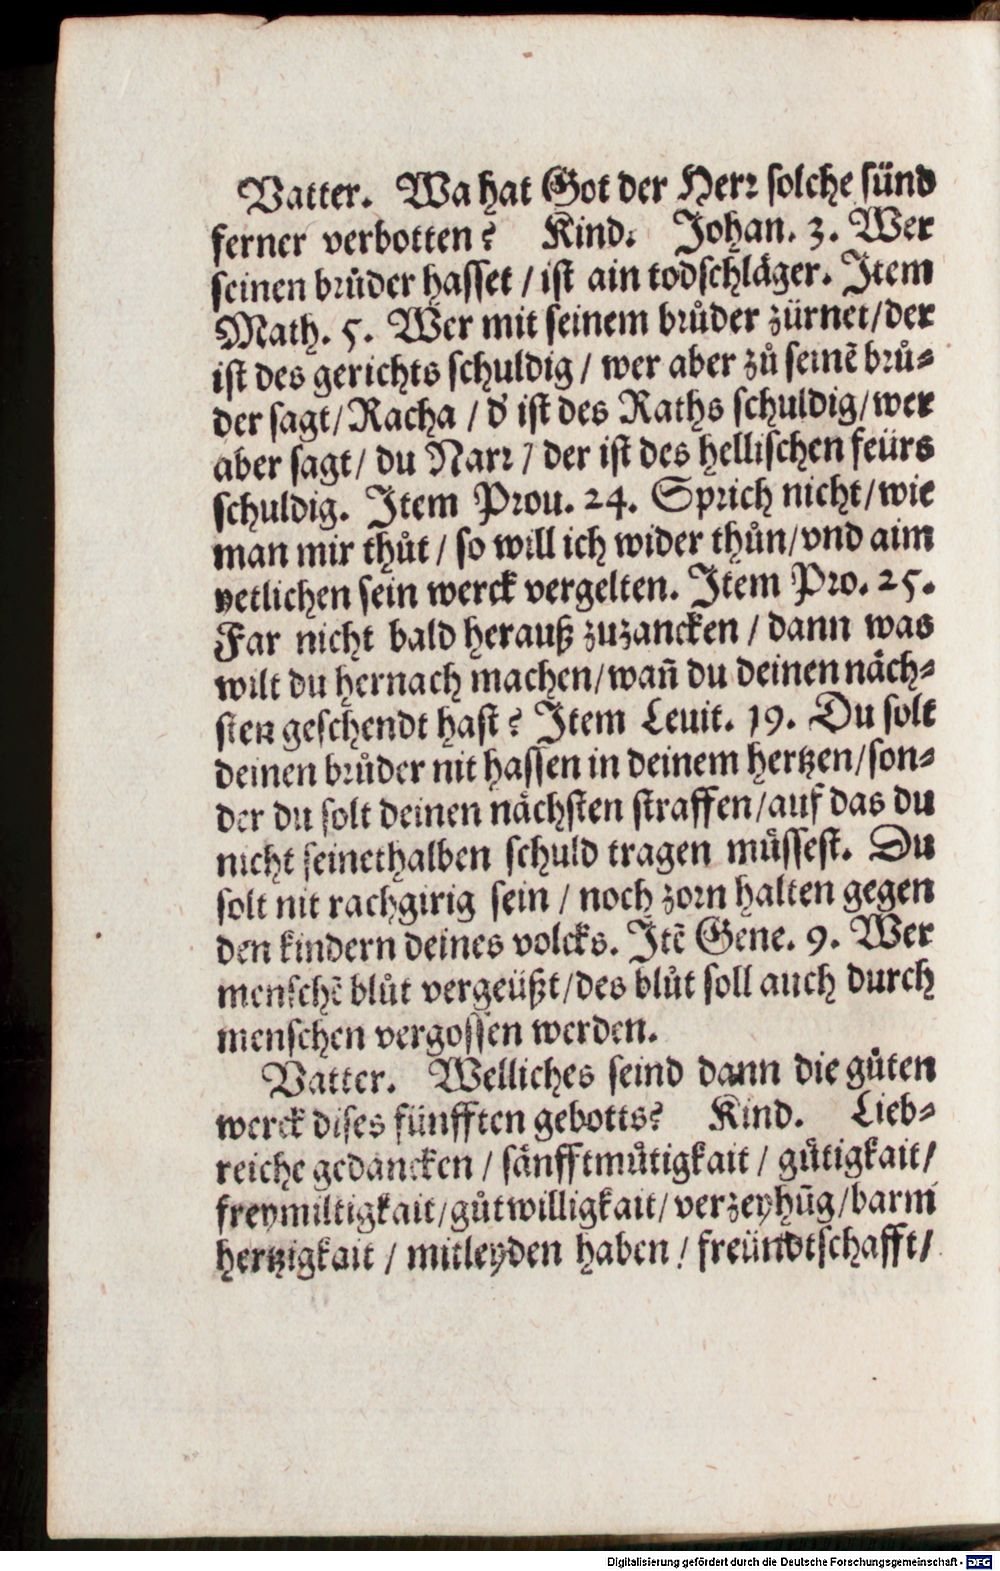 Vatter. Wa hat Got der Herr solche sünd
ferner verbotten? Kind. Johan. 3. Wer
seinen brůder hasset / ist ain todschläger. Item
Math. 5. Wer mit seinem brůder zürnet/der
ist des gerichts schuldig / wer aber zů seinē brů-
der sagt/ Racha / d' ist des Raths schuldig/wer
aber sagt/ du Narr / der ist des hellischen feürs
schuldig. Item Prou. 24. Sprich nicht/wie
man mir thůt / so will ich wider thůn/vnd aim
yetlichen sein werck vergelten. Item Pro. 25.
Far nicht bald herauß zuzancken / dann was
wilt du hernach machen/wañ du deinen näch-
sten geschendt hast? Item Leuit. 19. Du solt
deinen brůder nit hassen in deinem hertzen/son-
der du solt deinen nächsten straffen/auf das du
nicht seinethalben schuld tragen müssest. Du
solt nit rachgirig sein / noch zorn halten gegen
den kindern deines volcks. Itē Gene. 9. Wer
menschē blůt vergeüßt/des blůt soll auch durch
menschen vergossen werden.
Vatter. Welliches seind dann die gůten
werck dises fünfften gebotts? Kind. Lieb-
reiche gedancken / sänfftmůtigkait / gůtigkait/
freymiltigkait/gůtwilligkait/ verzeyhūg/barm
hertzigkait / mitleyden haben / freündtschafft/
Digitalisierung gefördert durch die Deutsche Forschungsgemeinschaft - DFG